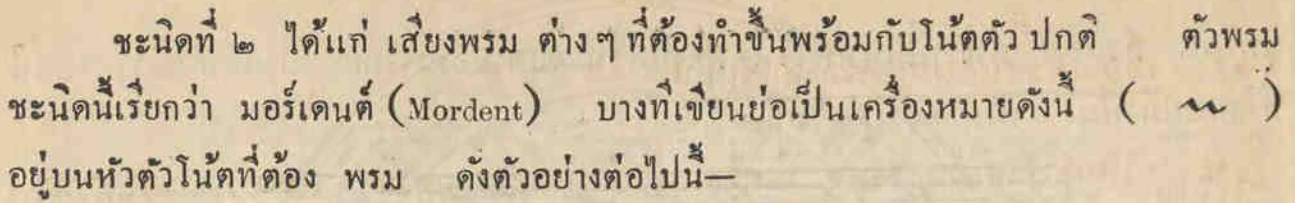 ชะนิดที่ ๒ ได้แก่ เสียงพรม ต่าง ๆ ที่ต้องทำขึ้นพร้อมกับโน้ตตัว ปกติ ตัวพรม
ชะนิดนี้เรียกว่า มอร์เดนต์ (Mordent) บางทีเขียนย่อเป็นเครื่องหมายดังนี้ ( 〰 )
อยู่บนหัวตัวโน้ตที่ต้อง พรม ดังตัวอย่างต่อไปนี้—